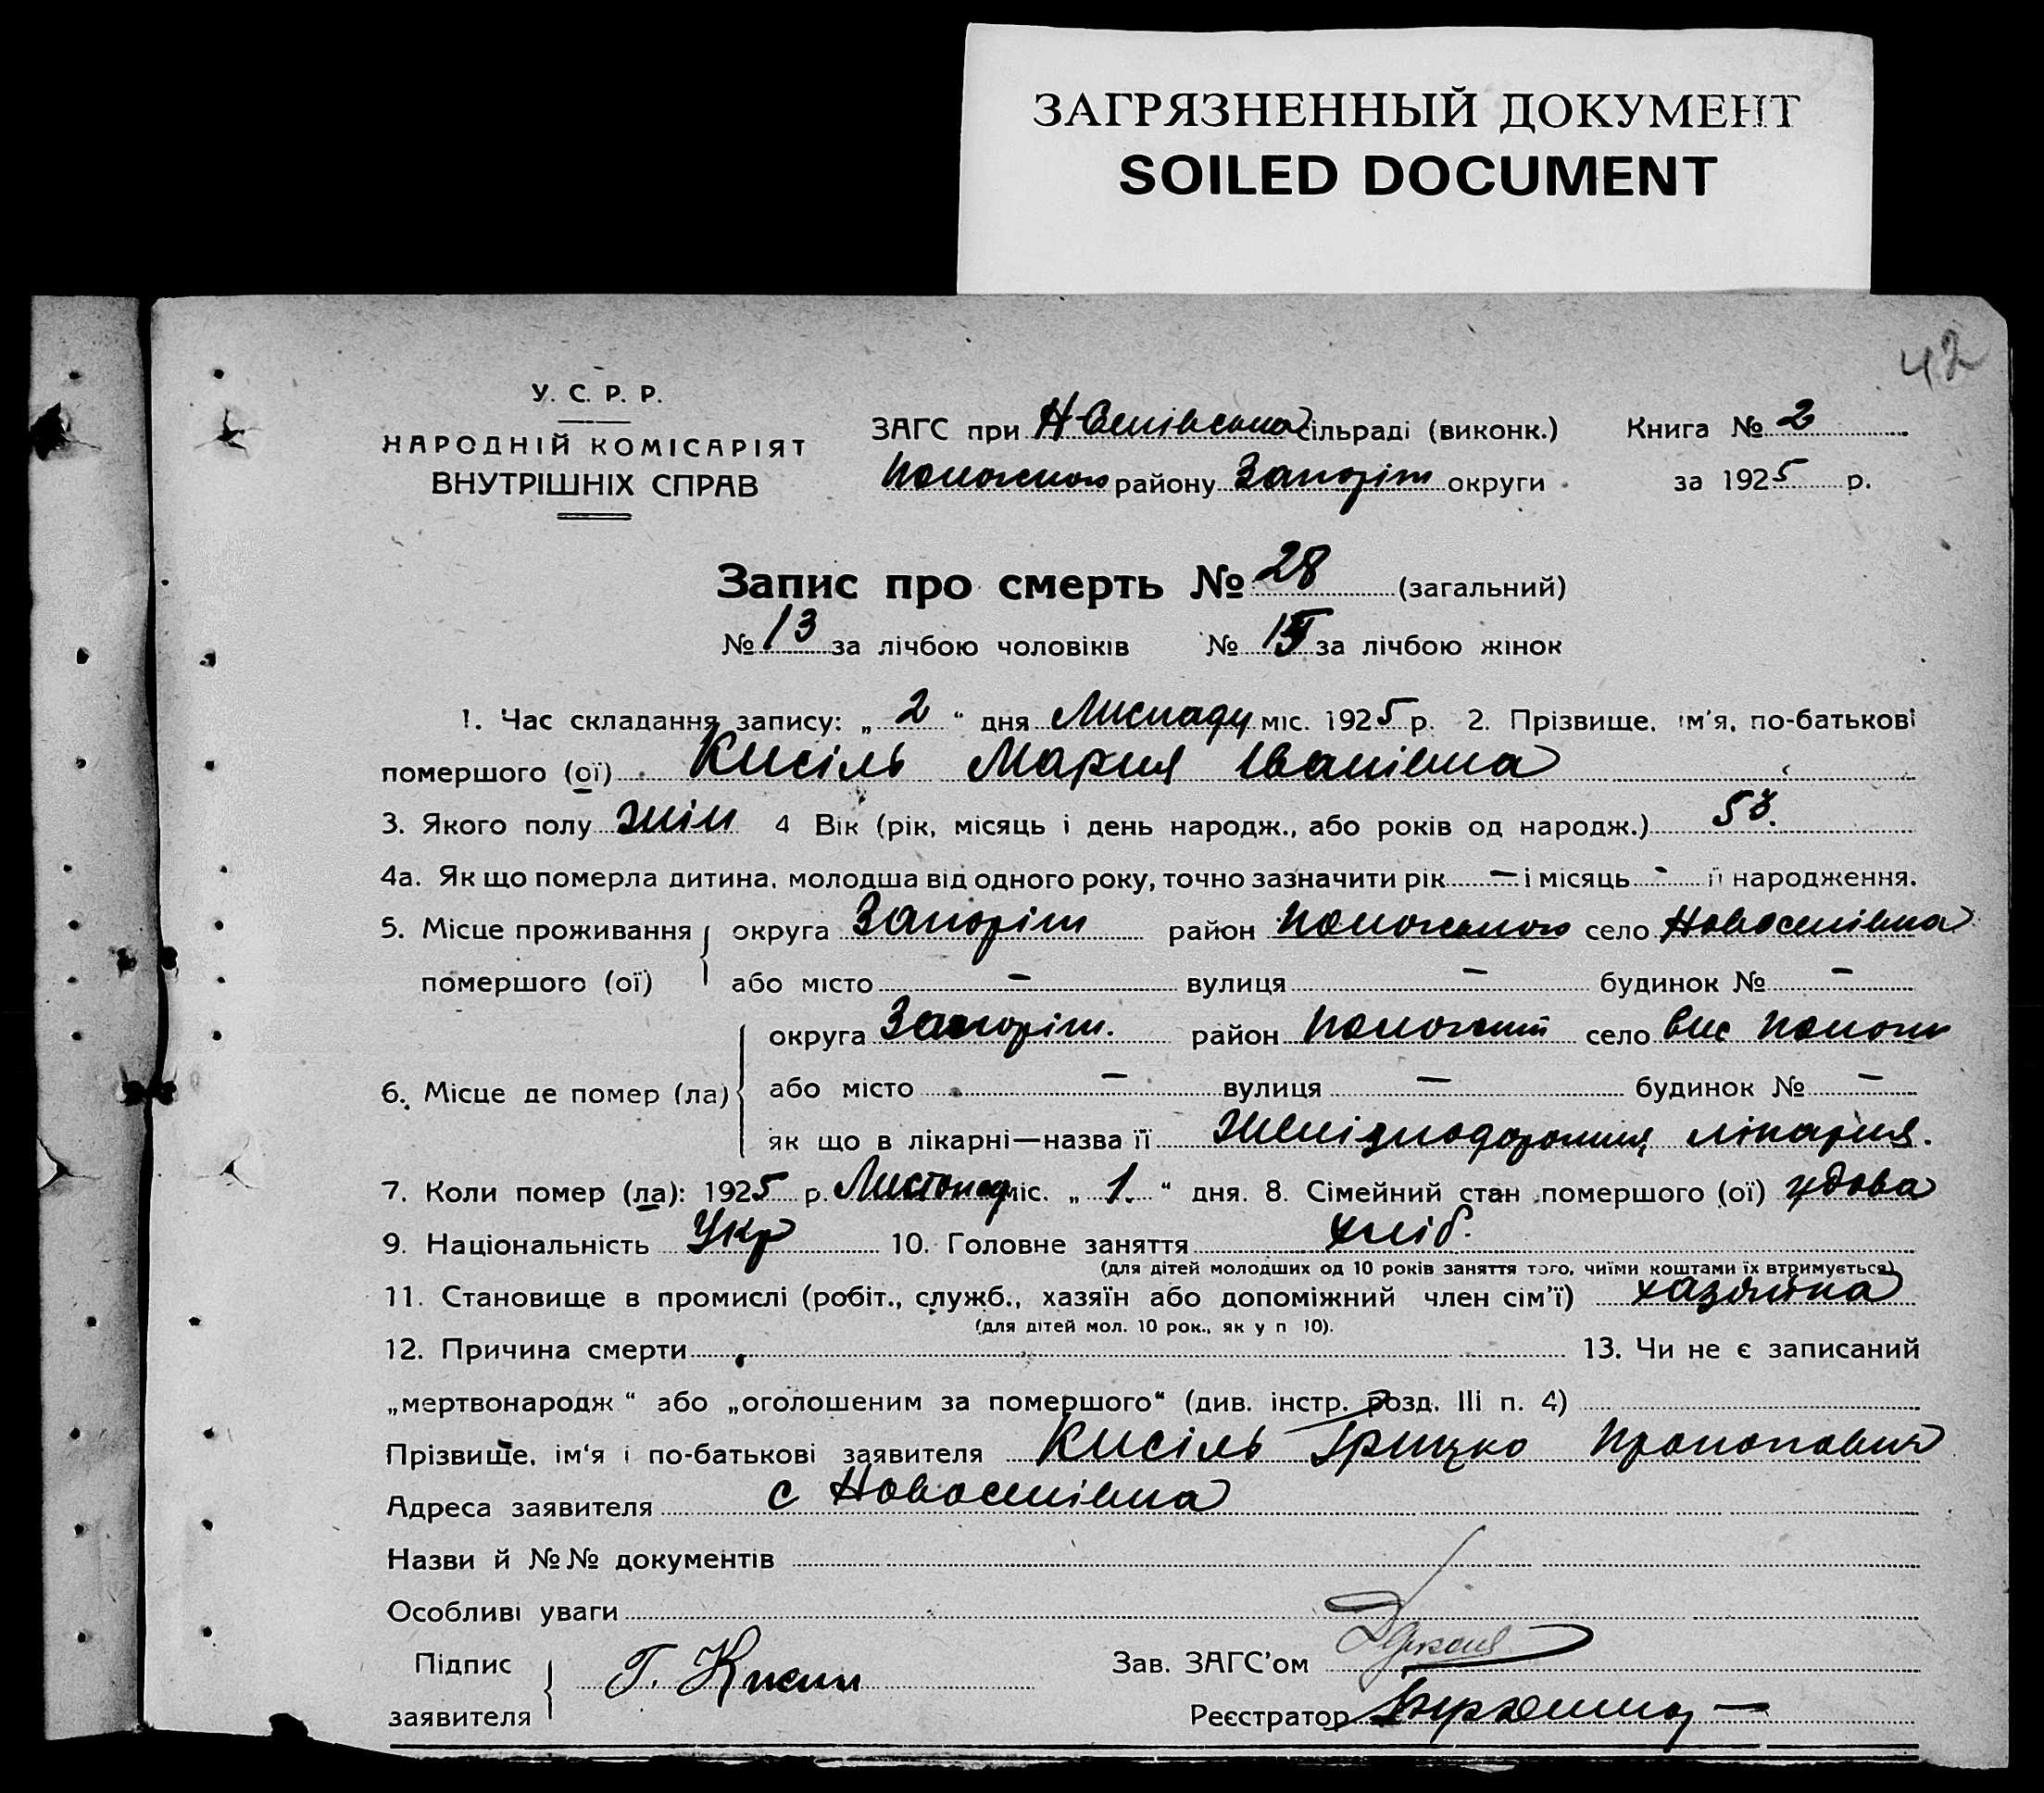 ЗАГРЯЗНЕННЫЙ ДОКУМЕНТ
SOILED DOCUMENT
42
У. С. Р. Р.
НАРОДНІЙ КОМІСАРІЯТ
ВНУТРІШНІХ СПРАВ
ЗАГС при Н Селівська сільраді (виконк.) Книга № 2
району Запоріж округи за 1925 р.
Запис про смерть № 28 (загальний)
№ 13 за лічбою чоловіків № 15 за лічбою жінок
1. Час складання запису: „ 2 “ дня Листпаду міс. 1925 р. 2. Прізвище, ім'я, по-батькові
помершого (ої) Кисіль Мария Іванівна
3. Якого полу жін 4 Вік (рік, місяць і день народж., або років од народж.) 53.
4а. Як що померла дитина, молодша від одного року, точно зазначити рік — і місяць - її народження.
5. Місце проживання округа Запоріж район село Новоселівка
помершого (ої) або місто — вулиця — будинок № —
округа Запоріж. район село вис Пологи
6. Місце де помер (ла) або місто — вулиця — будинок № —
як що в лікарні—назва її лікарня.
7. Коли помер (ла): 1925 р. Листопад міс. „ 1. “ дня. 8. Сімейний стан помершого (ої) удова
9. Національність Укр 10. Головне заняття хліб.
(для дітей молодших од 10 років заняття того, чиїми коштами їх втримується)
11. Становище в промислі (робіт., служб., хазяїн або допоміжний член сім'ї) хазяйка
(для дітей мол. 10 рок., як у п 10).
12. Причина смерти 13. Чи не є записаний
„мертвонародж“ або „оголошеним за помершого“ (див. інстр. розд. III п. 4)
Прізвище, ім'я і по-батькові заявителя Кисіль Грицко Прокопович
Адреса заявителя с Новоселівка
Назви й №№ документів
Особливі уваги
Підпис Г. Кисіль Зав. ЗАГС'ом
заявителя Реєстратор